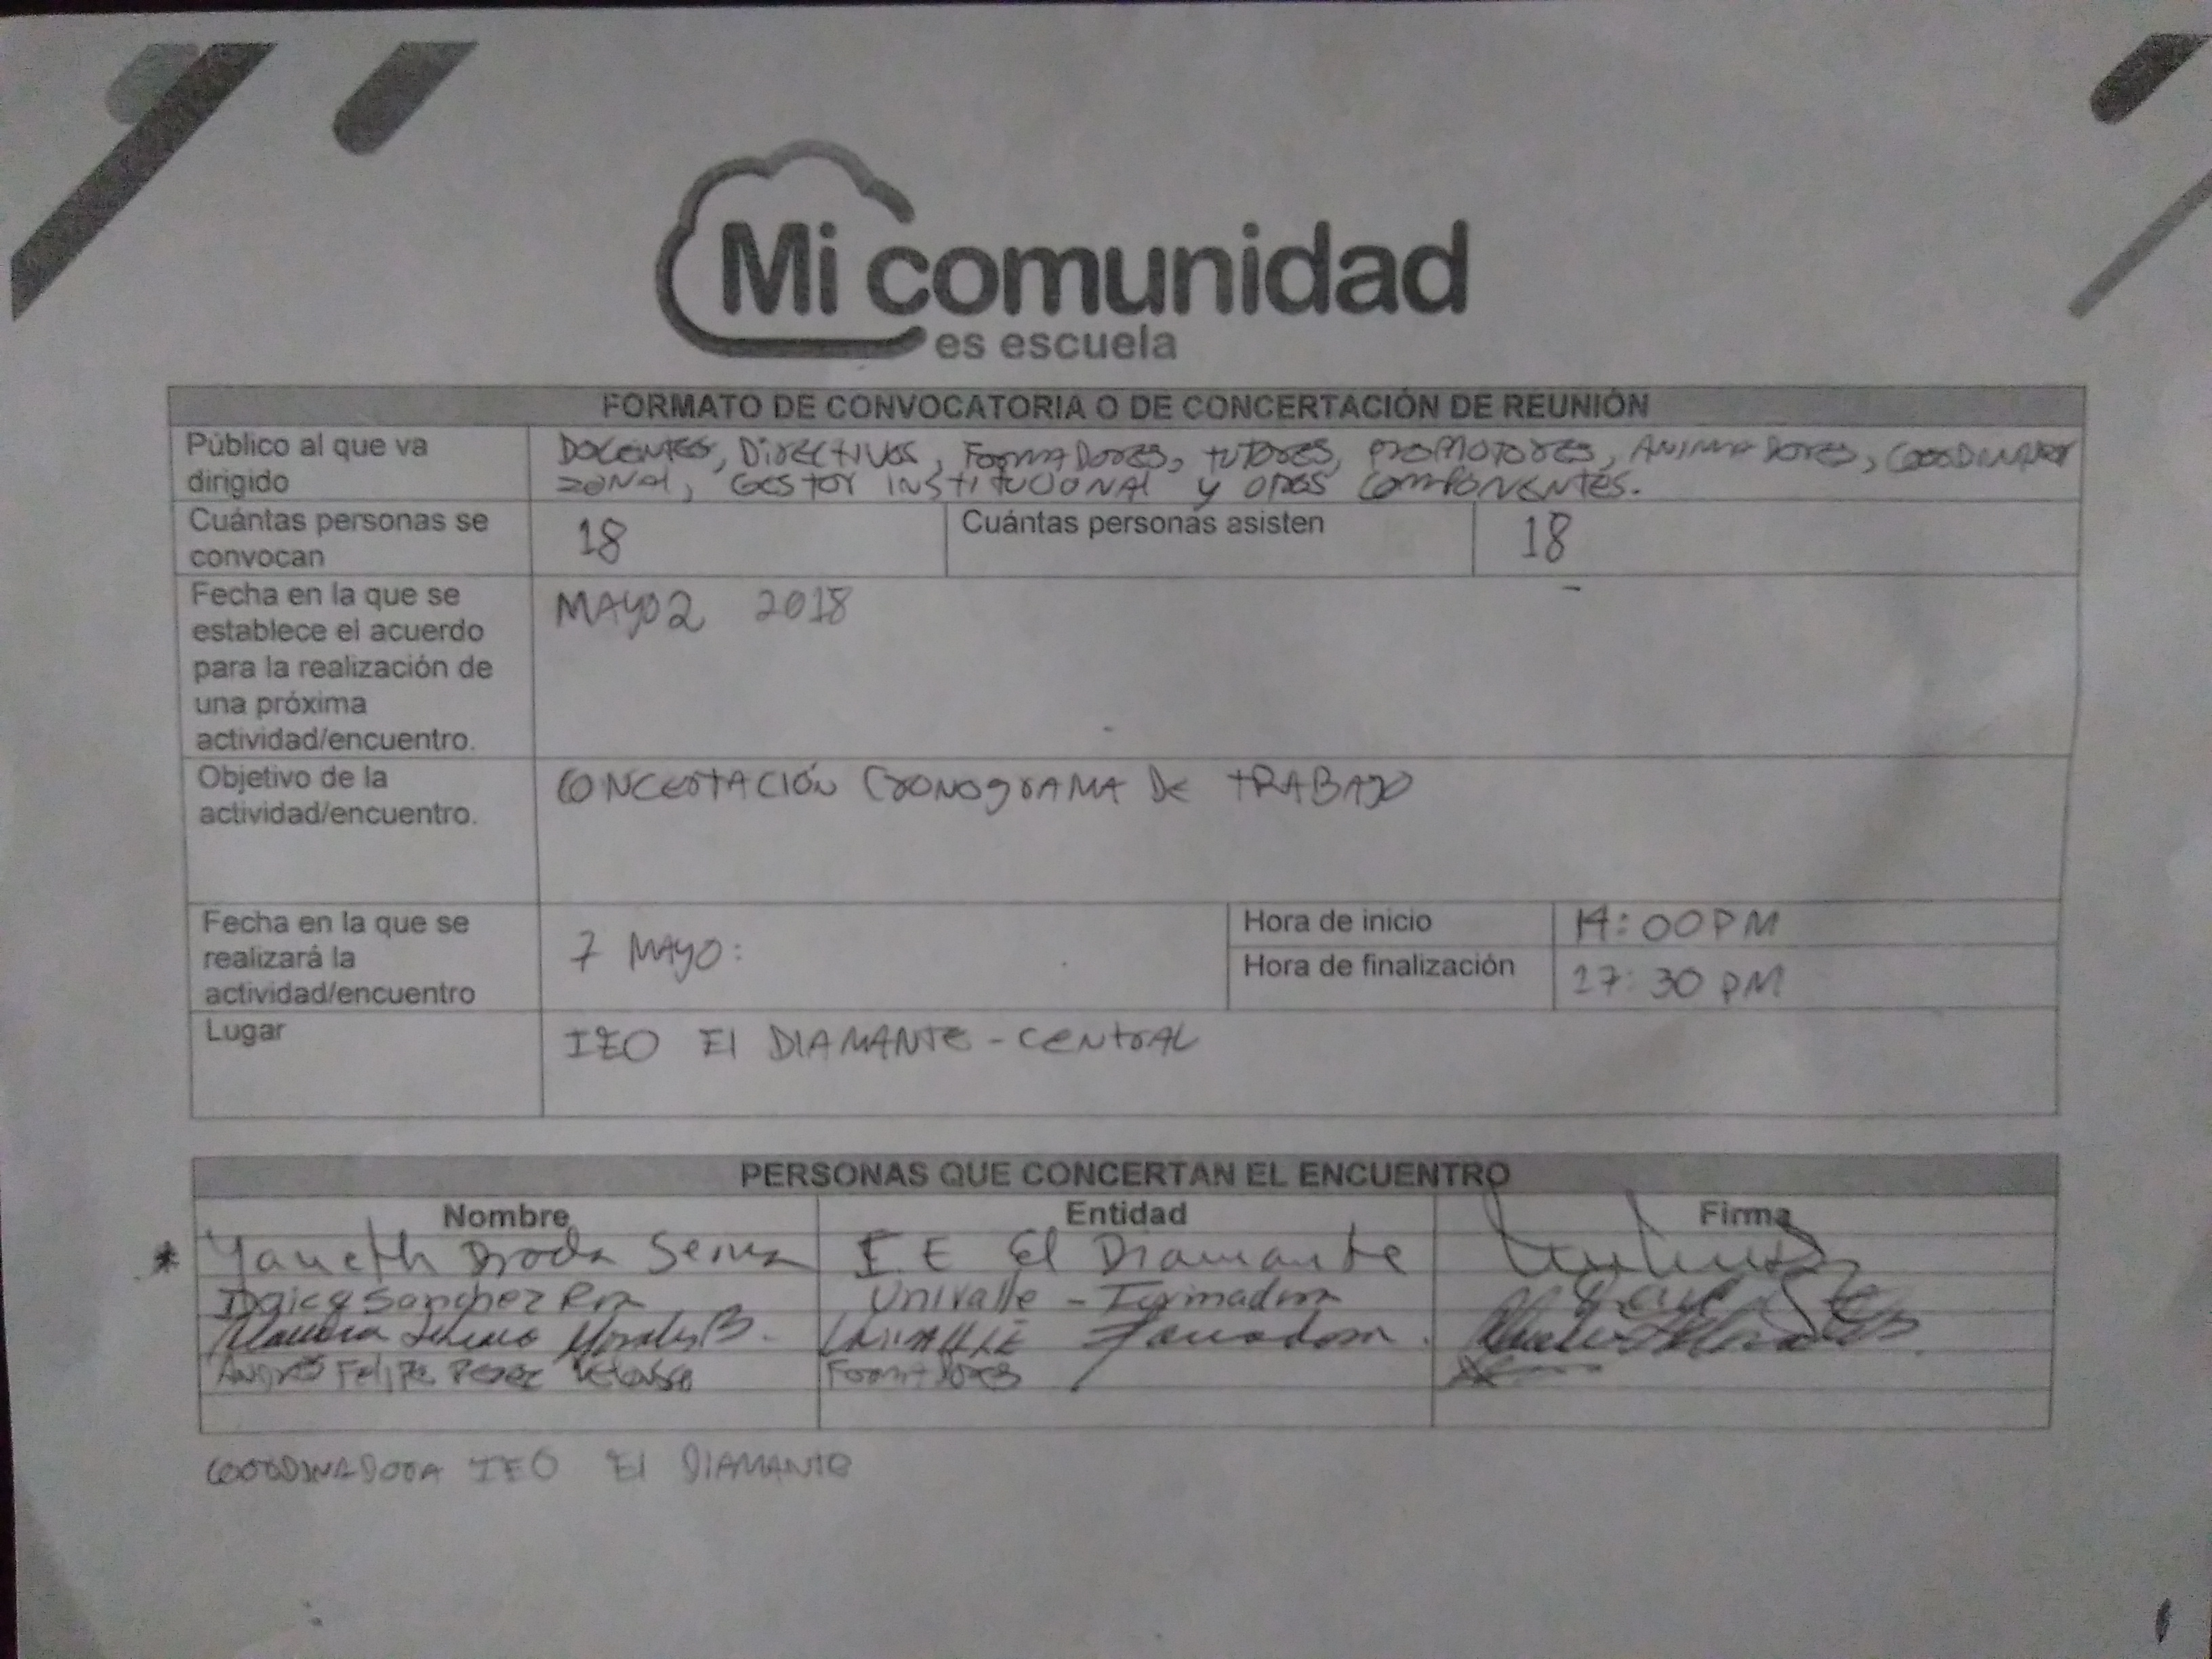 Mi comunidad
es escuela
FORMATO DE CONVOCATORIA O DE CONCERTACIÓN DE REUNIÓN
Público al que va dirigido
DOCENTES, DIRECTIVOS, FORMADORES, TUTORES, PROMOTORES, ANIMADORES, COORDINADOR
ZONAL, GESTOR INSTITUCIONAL Y OTROS COMPONENTES.
Cuántas personas se convocan
18
Cuántas personas asisten
18
Fecha en la que se establece el acuerdo para la realización de una próxima actividad/encuentro.
MAYO 2 2018
Objetivo de la actividad/encuentro.
CONCERTACIÓN CRONOGRAMA DE TRABAJO
Fecha en la que se realizará la actividad/encuentro
7 MAYO:
Hora de inicio
14:00 PM
Hora de finalización
17:30 PM
Lugar
IEO El DIAMANTE - CENTRAL
PERSONAS QUE CONCERTAN EL ENCUENTRO
Nombre Entidad Firma
* Yaneth I.E El Diamante
Sanchez Univalle - Formadora
Claudia Morales B. UNIVALLE Formadora.
ANDRÉS FELIPE PEREZ Velasco FORMADORES
COORDINADORA IEO El DIAMANTE